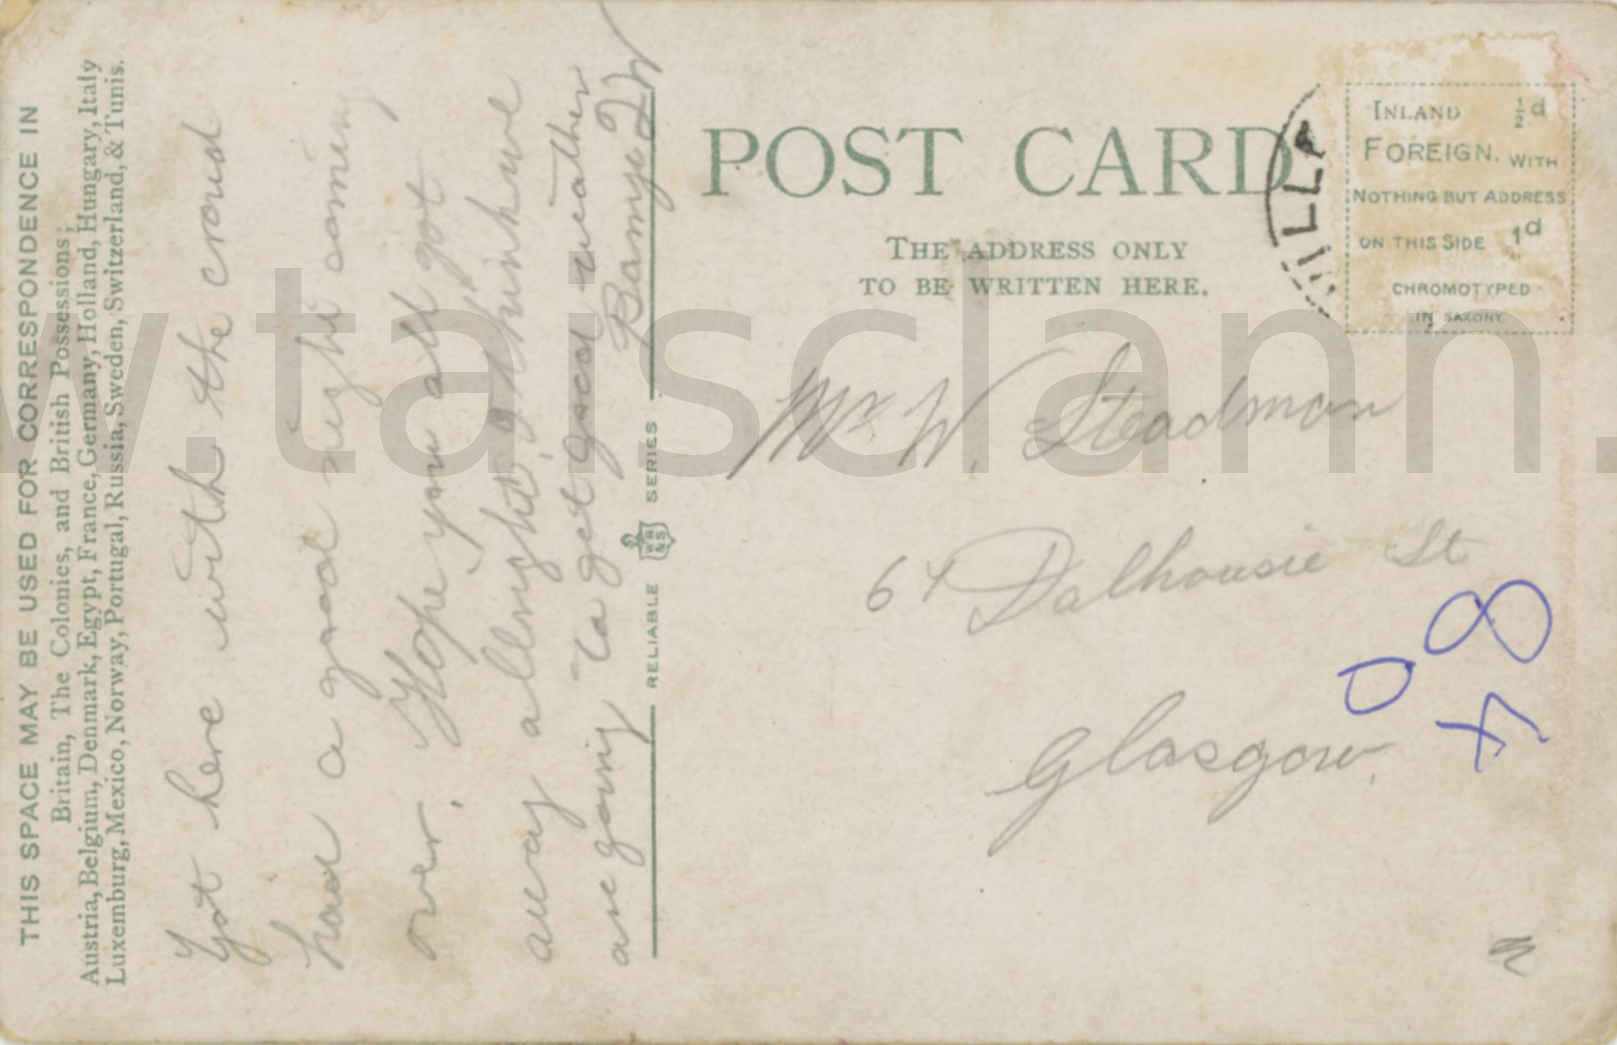 THIS SPACE MAY BE USED FOR CORRESPONDENCE IN
Britain, The Colonies, and British Possessions;
Austria, Belgium, Denmark, Egypt, France, Germany, Holland, Hungary, Italy
Luxemburg, Mexico, Norway, Portugal, Russia, Sweden, Switzerland, & Tunis.
Got here with the crowd
had a good night coming
over. Hope you all got
away allright, I think we
are going to get good weather
RELIABLE WR&S SERIES
POST CARD
THE ADDRESS ONLY
TO BE WRITTEN HERE.
INLAND ½d
FOREIGN. WITH
NOTHING BUT ADDRESS
ON THIS SIDE 1d
CHROMOTYPED
IN SAXONY
VILLA
Mr W. Steadman
64 Dalhousie St
Glasgow.
w.taisclann.